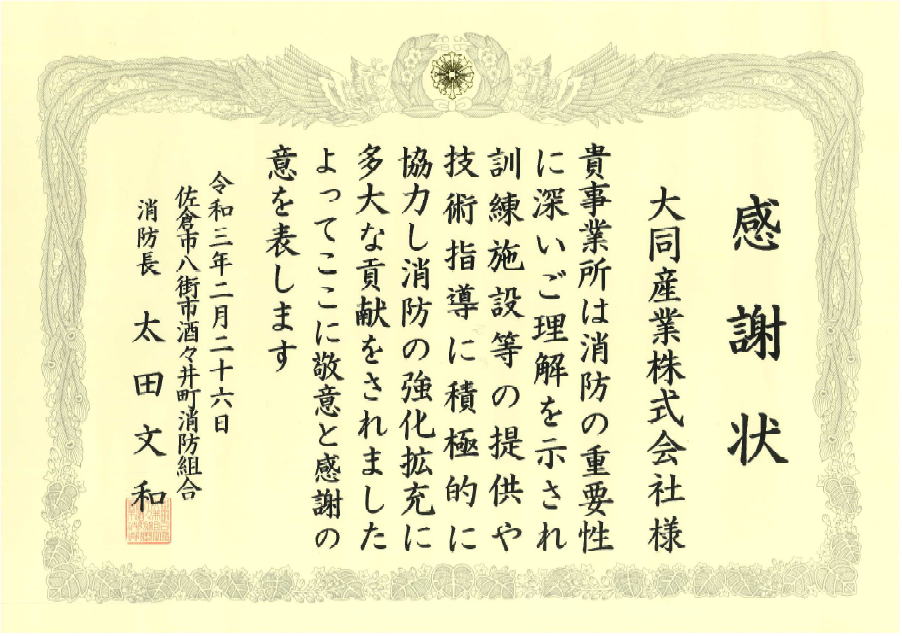 感謝状
大同産業株式会社様
貴事業所は消防の重要性
に深いご理解を示され
訓練施設等の提供や
技術指導に積極的に
協力し消防の強化拡充に
多大な貢献をされました
よってここに敬意と感謝の
意を表します
令和三年二月二十六日
佐倉市八街市酒々井町消防組合
消防長 太田文和